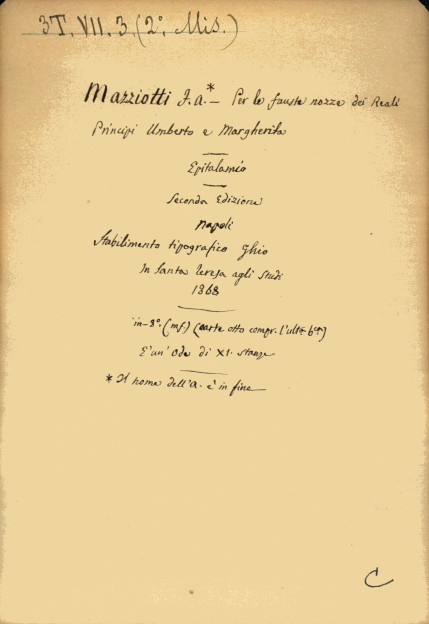 3T. VII. 3. (2°. Mis.)
Mazziotti F. a.* — Per le fauste nozze dei Reali
Principi Umberto e Margherita
Epitalamio
Seconda Edizione
Napoli
Stabilimento tipografico Ghio
In Santa Teresa agli Studi
1868
in-8°. (mf) (carte otto compr. l'ult. b.ca)
E' un' Ode di XI. stanze
* Il nome dell'a. è in fine
C